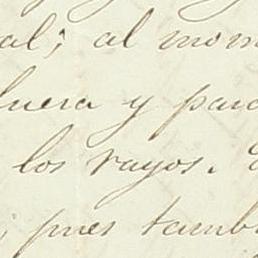 al; al mom
luera y para
los rayos.
; pues tamb